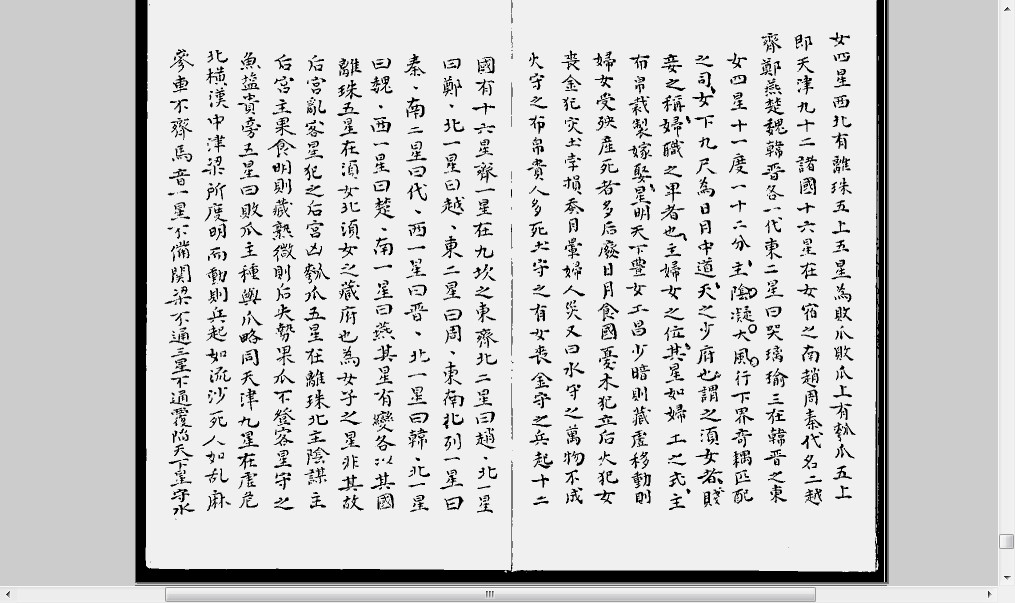 女四星西北有離珠五上五星為敗瓜敗瓜上有瓠瓜五上
即天津九十二諸國十六星在女宿之南趙周秦代名二越
齊鄭燕楚魏韓晋各一代東二星曰哭璃瑜三在韓晋之東
女四星十一度一十二分主陰凝大風行下界奇耦匹配
之司女下九尺為日月中道天之少府也謂之湏女者賤
妾之稱婦職之卑者也主婦女之位其星如婦工之式主
布帛裁製嫁娶星明天下豊女工昌少暗則藏虛移動則
婦女受殃産死者多后廢日月食國憂木犯立后火犯女
喪金犯灾土幸損蚕月暈婦人災又曰水守之萬物不成
火守之布帛貴人多死土守之有女喪金守之兵起十二
國有十六星齊一星在九坎之東齊北二星曰趙北一星
曰鄭北一星曰越東二星曰周東南北列一星曰
秦南二星曰代西一星曰晋北一星曰韓北一星
曰魏西一星曰楚南一星曰燕其星有變各以其國
離珠五星在湏女北湏女之藏府也為女子之星非其故
后宮亂客星犯之后宮凶瓠瓜五星在離珠北主陰謀主
后宮主果食明則歲熟微則后失勢果瓜不登客星守之
魚塩貴旁五星曰敗瓜主種與瓜略同天津九星在虛危
北橫漢中津梁所度明而動則兵起如流沙死人如乱麻
參車不齊馬音一星不備関梁不通三星不通覆陷天下星守水